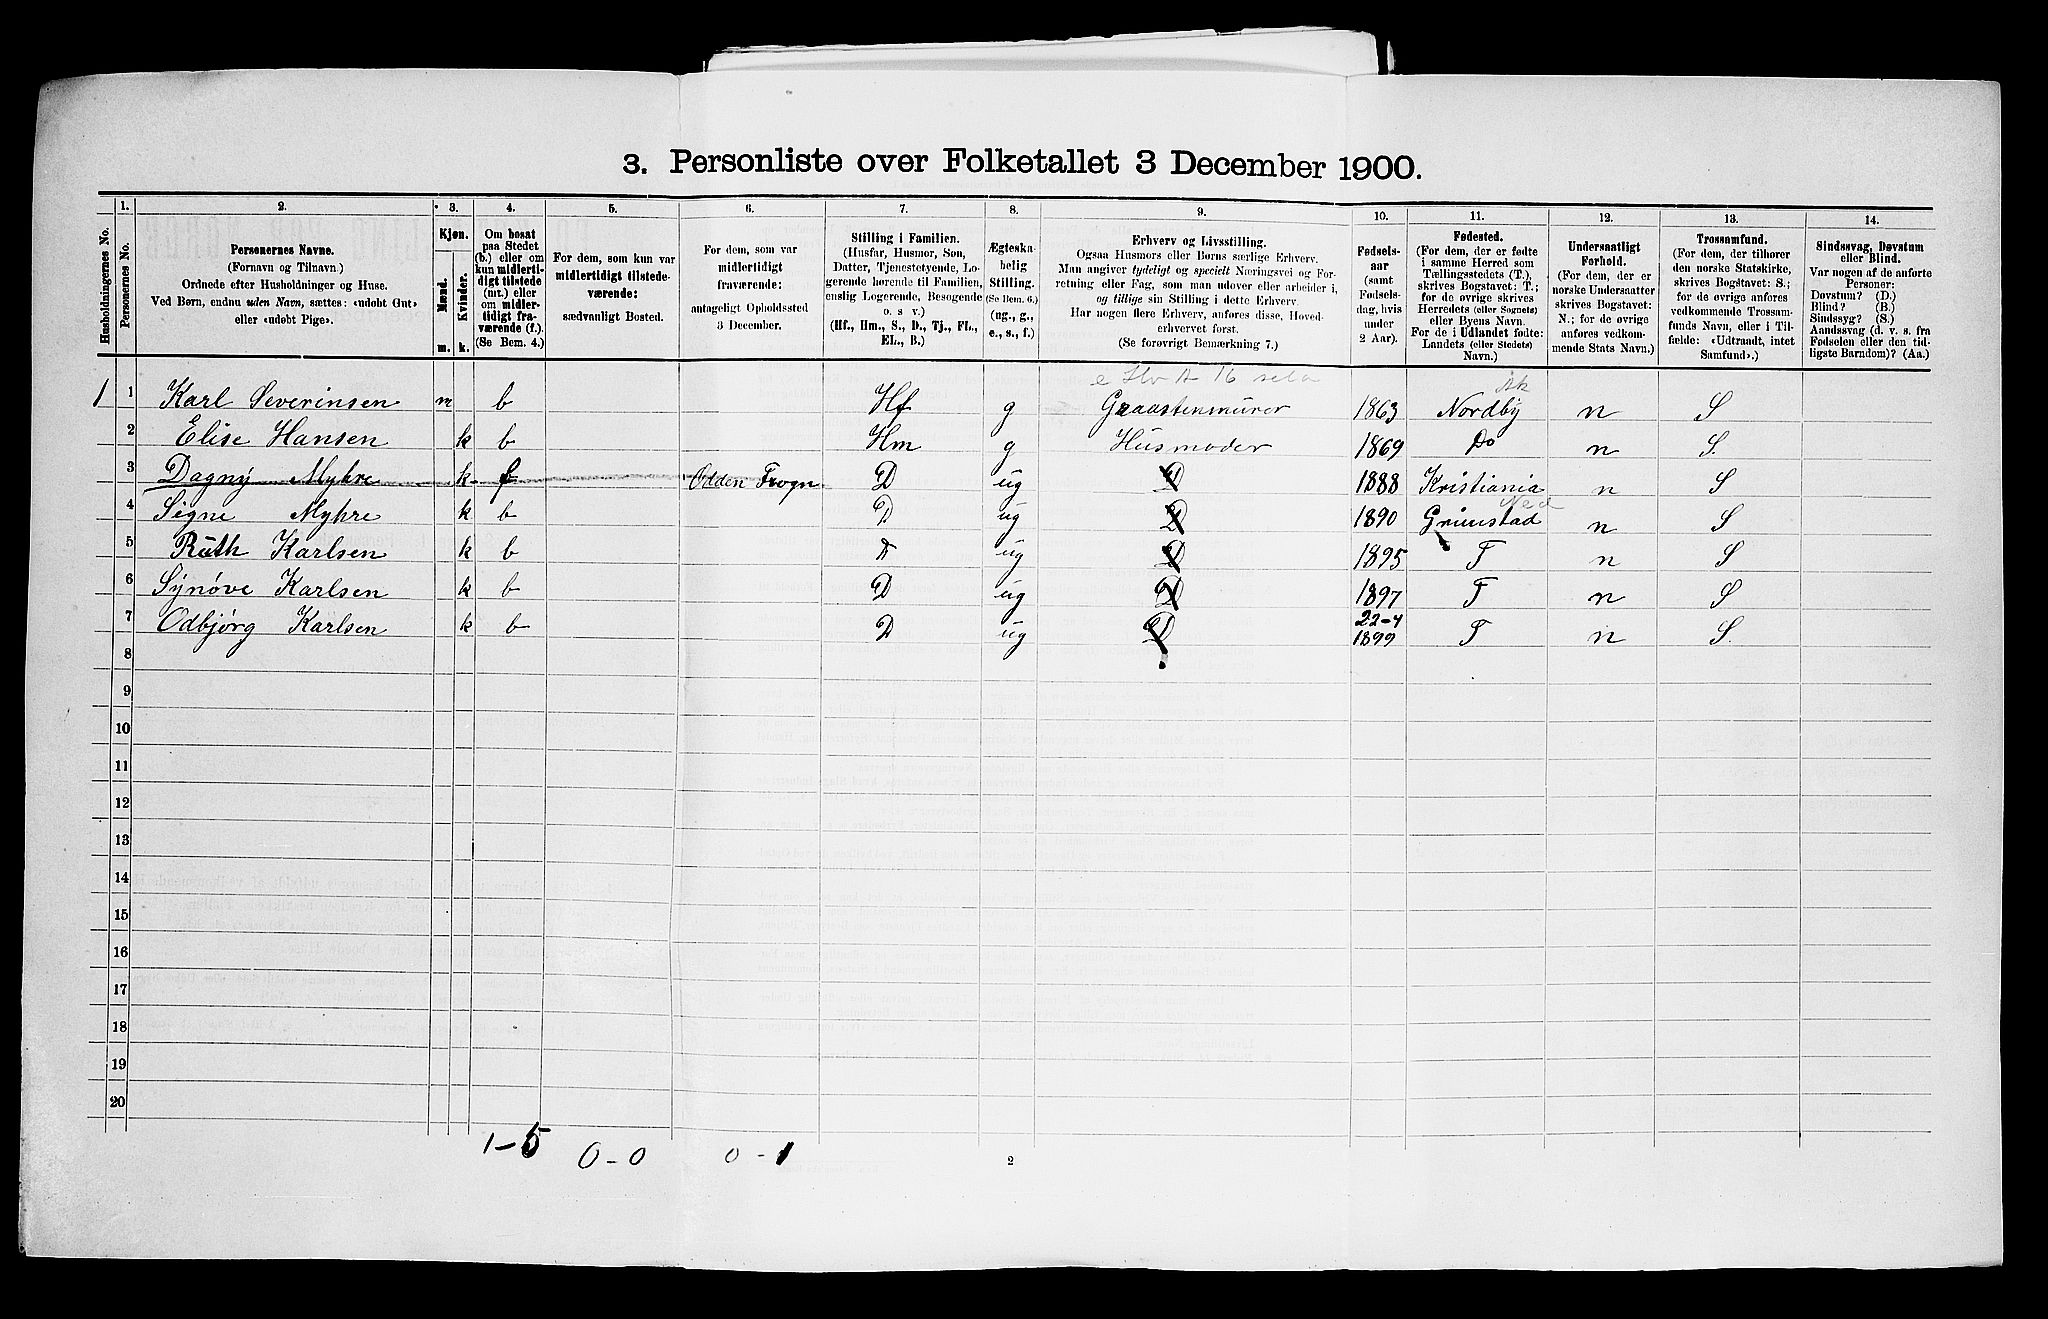 3. Personliste over Folketallet 3 December 1900.
Husholdningernes No.
1.
Personernes No.
2.
Personernes Navne.
(Fornavn og Tilnavn.)
Ordnede efter Husholdninger og Huse.
Ved Børn, endnu uden Navn, sættes: «udøbt Gut»
eller «udøbt Pige».
3.
Kjøn.
Mænd.
Kvinder.
m.
k.
4.
Om bosat
paa Stedet
(b.) eller om
kun midlerti-
digt tilstede
(mt.) eller
om midler-
tidigt fra-
værende (f.).
(Se Bem. 4.)
5.
For dem, som kun var
midlertidigt tilstede-
værende:
sædvanligt Bosted.
6.
For dem, som var
midlertidigt
fraværende:
antageligt Opholdssted
3 December.
7.
Stilling i Familien.
(Husfar, Husmor, Søn,
Datter, Tjenestetyende, Lo-
gerende hørende til Familien,
enslig Logerende, Besøgende
o. s v.)
(Hf., Hm., S., D., Tj., FL.,
EL., B.)
8.
Ægteska-
belig
Stilling.
(Se Bem. 6.)
(ug., g.,
e., s., f.)
9.
Erhverv og Livsstilling.
Ogsaa Husmors eller Børns særlige Erhverv.
Man angiver tydeligt og specielt Næringsvei og For-
retning eller Fag, som man udover eller arbeider i,
og tillige sin Stilling i dette Erhverv.
Har nogen flere Erhverv, anføres disse, Hoved-
erhvervet først.
(Se forøvrigt Bemærkning 7.)
10.
Fødsels-
aar
(samt
Fødsels-
dag, hvis
under
2 Aar).
11.
Fødested.
(For dem, der er fødte
i samme Herred som
Tællingsstedets (T.),
skrives Bogstavet: T.;
for de øvrige skrives
Herredets (eller Sognets)
eller Byens Navn.
For de i Udlandet fødte:
Landets (eller Stedets)
Navn.)
12.
Undersaatligt
Forhold.
(For dem, der er
norske Undersaatter
skrives Bogstavet:
N.; for de øvrige
anføres vedkom-
mende Stats Navn.)
13.
Trossamfund.
(For dem, der tilhører
den norske Statskirke,
skrives Bogstavet: S.;
for de øvrige anføres
vedkommende Trossam-
funds Navn, eller i Til-
fælde: «Udtraadt, intet
Samfund».)
14.
Sindssvag, Døvstum
eller Blind.
Var nogen af de anførte
Personer:
Døvstum? (D.)
Blind? (B.)
Sindssyg? (S.)
Aandssvag (d. v. s. fra
Fødselen eller den tid-
ligste Barndom)? (Aa.)
1 1 Karl Severinsen m b Hf g Graastenmurer 1863 Nordby Ak n S
2 Elise Hansen k b Hm g Husmoder 1869 Do n S.
3 Dagny Myhre k f Odden Frogn D ug D 1888 Kristiania n S
4 Signe Myhre k b D ug D 1890 Grimstad Ned n S
5 Ruth Karlsen k b D ug D 1895 T n S
6 Synøve Karlsen k b D ug D 1897 T n S
7 Odbjørg Karlsen k b D ug D 22-4 1899 T n S.
8
9
10
11
12
13
14
15
16
17
18
19
20
1-5 0-0 0-1
2